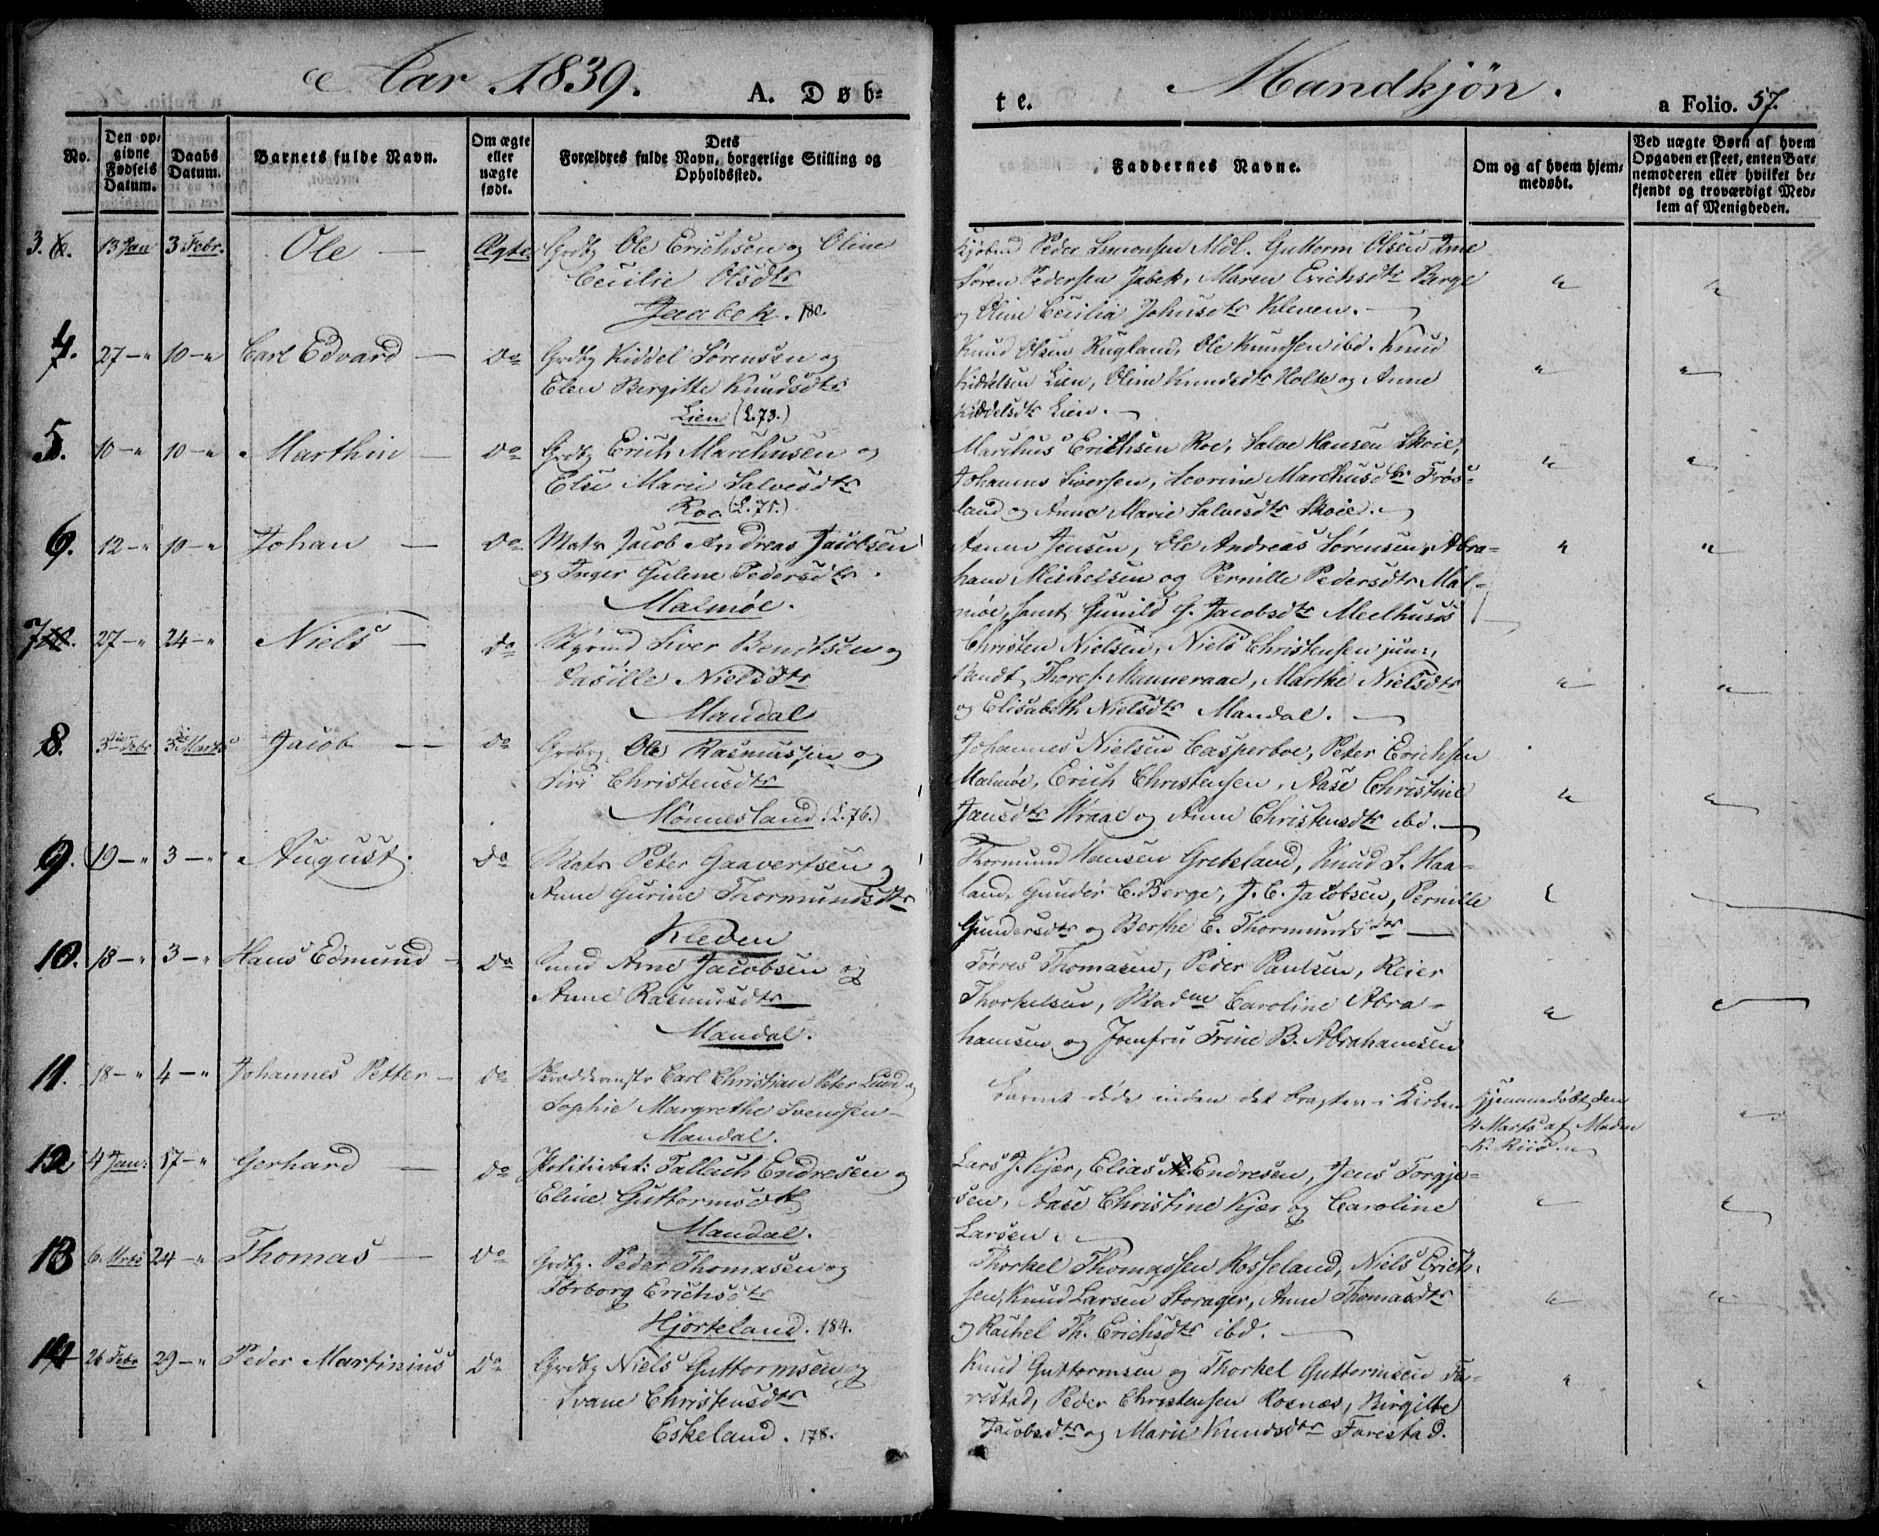 Aar 1839. A. Døb-
No. Den opgivne Fødsels Datum. Daabs Datum. Barnets fulde Navn. Om ægte eller uægte født. Dets Forældres fulde Navn, borgerlige Stilling og Opholdssted.
3. 13 Jan 3 Febr. Ole — Ægte Grdbg Ole Erichsen og Oline
Cecilie Olsdtr
Jaabek. 180.
4. 27 —" 10 —" Carl Edvard — Do Grdbg Kiddel Sørensen og
Elen Birgitte Knudsdtr
Lien (L.73.)
5. 10 —" 10 —" Marthin — Do Grdbg Erich Marchusen og
Else Marie Salvesdtr
Roe (L.75.)
6. 12 —" 10 —" Johan — Do Matr Jacob Andreas Jacobsen
og Inger Gulene Pedersdtr.
Malmøe.
7. 27 —" 24 —" Niels — Do Siver Berntsen og
Nielsdtr
Mandal
8. 3 Febr 3 Marts Jacob — Do Grdbg. Ole Rasmussen og
Siri Christensdtr
Mønnesland. (L.76.)
9. 19 —" 3 —" August. Do Matr Peter Gaavertsen og
Anne Gurine Thormundsdtr
Kleven
10. 18 —" 3 —" Hans Edmund — Do Arne Jacobsen og
Anne Rasmusdtr
Mandal.
11. 18 —" 4 —" Johannes Petter — Do Carl Christian Peter Lund og
Sophie Margrethe Svendsen
Mandal.
12. 4 Jan: 17 —" Gerhard — Do Politiebet: Tallach Endresen og
Eline Guttormsdtr
Mandal.
13 6. Mrts 24 —" Thomas — Do Grdbg. Peder Thomasen og
Torborg Erichsdtr
Hjorteland. 184.
14 26 Febr 29 —" Peder Martinius Do Grdbg Niels Guttormsen og
Christensdtr
Eskeland. 178.
te. Mandkjøn. a Folio. 57.
Faddernes Navne. Om og af hvem hjemmedøbt. Ved uægte Børn af hvem Opgaven er skeet, enten Barnemoderen eller hvilket bekjendt og troværdigt Medlem af Menigheden.
Peder Mdl. Guttorm Olsen Ime
Søren Pedersen Jabek, Maren Erichsdtr Berge
og Oline Cecilia Kleven. —
Knud Olsen Rugland, Ole Knudsen ibd. Knud
Kiddelsen Lien, Oline Knudsdtr Holte og Anne
Kiddelsdtr Lien. —
Marchus Erichsen Roe, Salve Hansen Skoie,
Johannes Siversen, Severine Marchusdtr Frøs-
land og Anne Marie Salvesdtr Skoie. —
Jensen, Ole Andreas Sørensen, Abra-
ham Michelsen og Pernille Pedersdtr Mal-
møe, samt Gunild Jacobsdtr Meelhuus
Christen Nielsen, Niels Christensen jun:,
Manneraae, Marthe Nielsdtr
og Elisabeth Nielsdtr Mandal. —
Johannes Nielsen Casperboe, Peter Erichsen
Malmøe, Erich Christensen, Aase Christine
Jansdtr Kraae og Anne Christensdtr ibd. —
Thormund Hansen Greteland, Knud S. Haa-
land, Gunder C. Berge, J. C. Jacobsen, Pernille
Gundersdtr og Berthe E. Thormundsdtr —
Tørres Thomasen, Peder Paulsen, Reier
Thorkelsen, Madme Caroline Abra-
hamsen og Jomfru Trine B. Abrahamsen
Barnet døde inden det bragtes i Kirken Hjemmedøbt den
4 Marts af Madm
Lars J. Kjer, Elias Endresen, Jens Torgje-
sen, Aase Christine Kjær og Caroline
Larsen. —
Thorkel Thomassen Rosseland, Niels Erich-
sen, Knud Larsen Storager, Anne Thomasdtr
og Rachel Th. Erichsdtr ibd. —
Knud Guttormsen og Thorkel Guttormsen Fa-
restad, Peder Christensen Rosnæs, Birgitte
Jacobsdtr og Marie Knudsdtr Farestad.